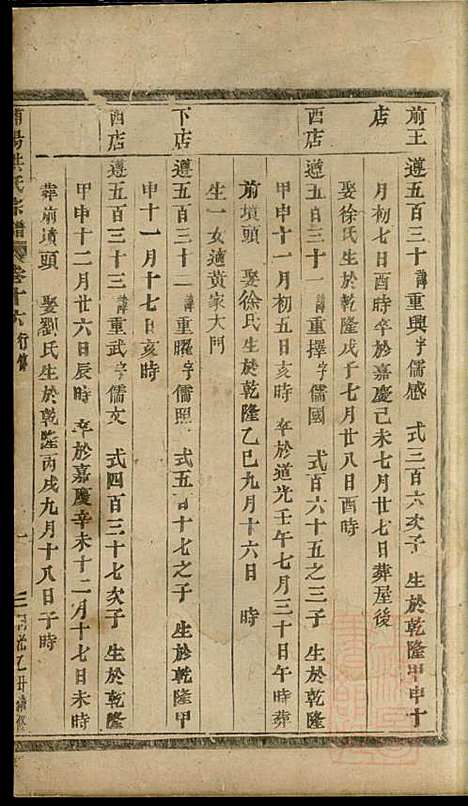 前王 遵五百三十 諱重興字儒感 式三百六次子 生於乾隆甲申十
店 月初七日酉時卒於嘉慶己未七月廿七日葬屋後
娶徐氏生於乾隆戊子七月廿八日酉時
西店 遵五百三十一 諱重擇字儒國 式百六十五之三子 生於乾隆
甲申十一月初五日亥時 卒於道光壬午七月三十日午時葬
前墳頭 娶徐氏生於乾隆乙巳九月十六日 時
生一女適黃家大門
下店 遵五百三十二 諱重曜字儒照 式五百十七之子 生於乾隆甲
申十一月十七日亥時
西店 遵五百三十三 諱重武字儒文 式四百三十七次子 生於乾隆
甲申十二月廿六日辰時 卒於嘉慶辛未十二月十七日未時
葬前墳頭 娶劉氏生於乾隆丙戌九月十八日子時
陽洪氏宗譜 卷十六 行傳 一 光乙丑續修